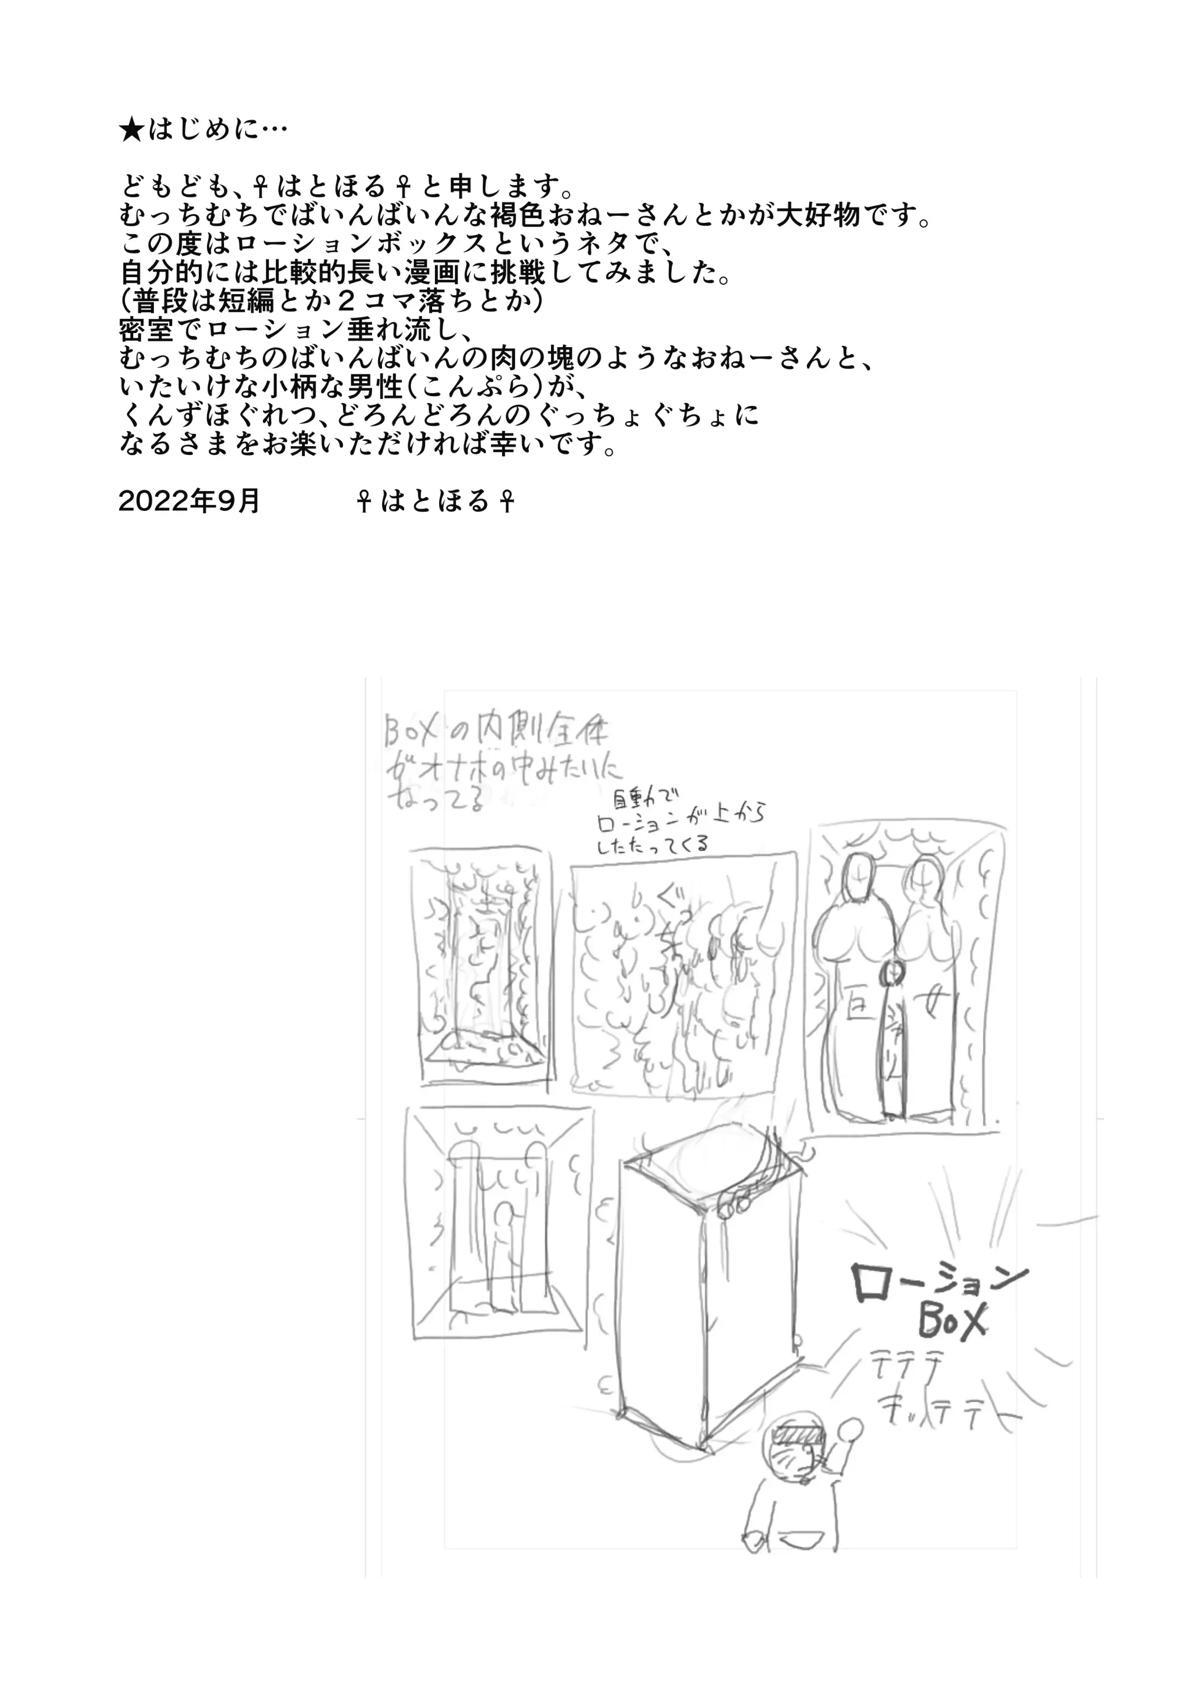 ★はじめに…
どもども、♀はとほる♀と申します。
むっちむちでばいんばいんな褐色おねーさんとかが大好物です。
この度はローションボックスというネタで、
自分的には比較的長い漫画に挑戦してみました。
（普段は短編とか２コマ落ちとか）
密室でローション垂れ流し、
むっちむちのばいんばいんの肉の塊のようなおねーさんと、
いたいけな小柄な男性（こんぷら）が、
くんずほぐれつ、どろんどろんのぐっちょぐちょに
なるさまをお楽いただければ幸いです。
2022年9月　　　♀はとほる♀
BOXの内側全体
がオナホの中みたいに
なってる
自動で
ローションが上から
したたってくる
巨
女
ローション
BOX
テテテ